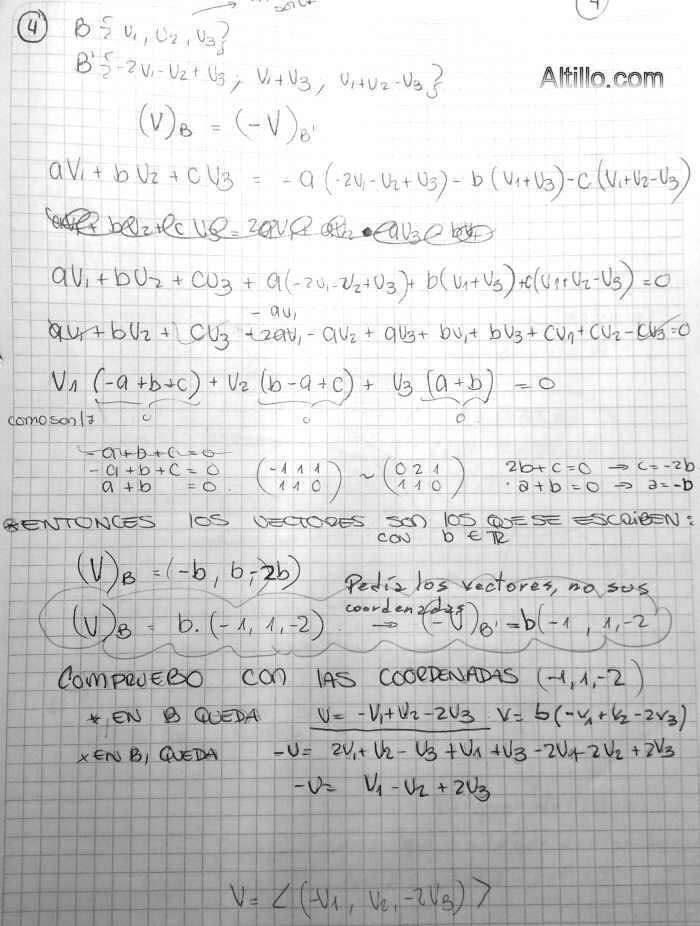 4
B { v1, v2, v3}
B' {-2v1-v2+v3; v1+v3, v1+v2-v3}
Altillo.com
(v)B = (-v)B'
av1 + bv2 + cv3 = -a(-2v1-v2+v3) - b(v1+v3) - c(v1+v2-v3)
av1 + bv2 + cv3 + a(-2v1-v2+v3) + b(v1+v3) + c(v1+v2-v3) = 0
- av1
av1 + bv2 + cv3 - 2av1 - av2 + av3 + bv1 + bv3 + cv1 + cv2 - cv3 = 0
v1 (-a+b+c) + v2 (b-a+c) + v3 (a+b) = 0
0 0 0
como son li
-a+b+c=0
-a+b+c=0 (-1 1 1 ~ (0 2 1 2b+c=0 → c=-2b
a+b =0 1 1 0) 1 1 0) a+b=0 → a=-b
*ENTONCES LOS VECTORES SON LOS QUE SE ESCRIBEN:
CON b ∈ R
(v)B = (-b, b, -2b)
Pedía los vectores, no sus
coordenadas
(v)B = b. (-1, 1, -2) → (-v)B' = b(-1, 1, -2
COMPRUEBO CON LAS COORDENADAS (-1,1,-2)
* EN B QUEDA v = -v1+v2-2v3 v = b(-v1+v2-2v3)
* EN B, QUEDA -v = 2v1+v2-v3+v1+v3-2v1-2v2+2v3
-v = v1-v2+2v3
v = < (-v1, v2, -2v3) >